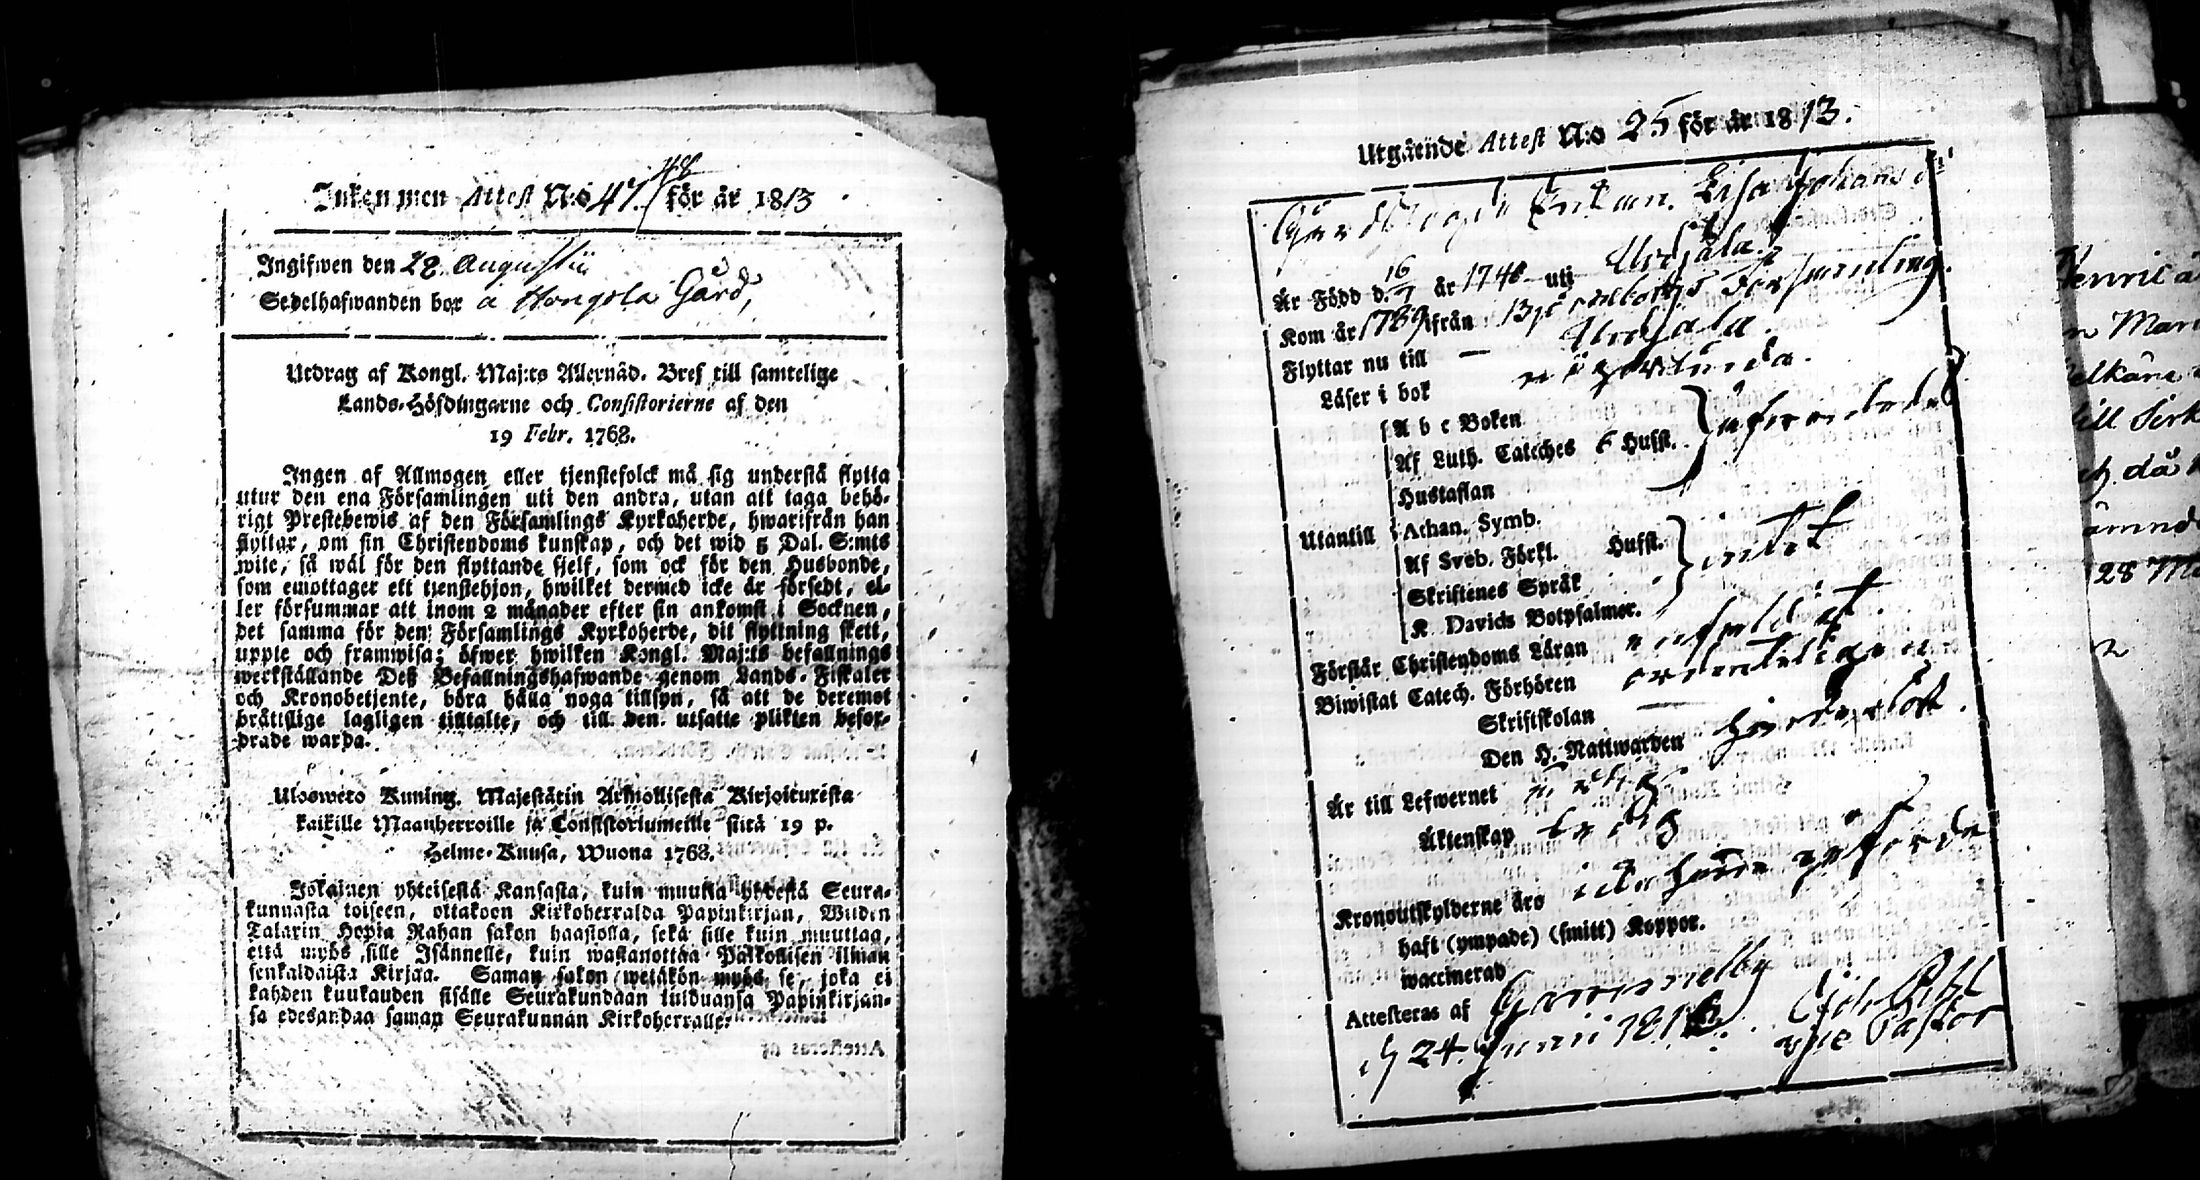 Inkommen Attest N:o 47. 48 för år 1813
Ingifwen den 28 Augustii
Sedelhafwanden bor å Hongola Gård,
Utdrag af Kongl. Maj:ts Allernåd. Bref till samtelige
Lands-Höfdingarne och Consistorierne af den
19 Febr. 1768.
Ingen af Allmogen eller tjenstefolck må sig understå flytta
utur den ena Församlingen uti den andra, utan att taga behö-
rigt Prestebewis af den Församlings Kyrkoherde, hwarifrån han
flyttar, om sin Christendoms kunskap, och det wid 5 Dal. S:mts
wite, så wäl för den flyttande sjelf, som ock för den Husbonde,
som emottager ett tjenstehjon, hwilket dermed icke är försedt, el-
ler försummar att inom 2 månader efter sin ankomst i Socknen,
det samma för den Församlings Kyrkoherde, dit flyttning skett,
uppte och framwisa; öfwer hwilken Kongl. Maj:ts befallnings
werkställande Deß Befallningshafwande genom Lands-Fiskaler
och Kronobetjente, böra hålla noga tillsyn, så att de deremot
bråttslige lagligen tilltalte, och till den utsatte plikten befor-
drade warda.
Uloswero Kuning. Majestätin Armollisesta Kirjoituxesta
kaikille Maanherroille ja Consistoriumeille siitä 19 p.
Helme-Kuusa, Wuona 1768.
Jokainen yhteisestä Kansasta, kuin muutta yhdestä Seura-
kunnasta toiseen, ottakoon Kirkoherralda Papinkirjan, Wiiden
Talarin Hopia Rahan sakon haastolla, sekä sille kuin muuttaa,
että myös sille Isännelle, kuin wastanottaa Palkollisen ilman
senkaldaista Kirjaa. Saman sakon wetäkön myös se, joka ei
kahden kuukauden sisälle Seurakundaan tulduansa Papinkirjan-
sa edesandaa saman Seurakunnan Kirkoherralle.
Utgående Attest N:o 25 för år 1813.
Enkan Lisa Johans dr
Är Född d. 16/7 år 1748 uti Urdjala
Kom år 1789 ifrån Björneborgs Församling.
Flyttar nu till — Urdjala.
Läser i bok
A b c Boken
Af Luth. Cateches 6 Hufst.
Hustaflan
Utantill Athan. Symb.
Af Sveb. Förkl. Hufst. intet
Skriftenes Språk
K Davids Botpsalmer.
Förstår Christendoms Läran enfaldigt.
Biwistat Catech. Förhören ordenteligen
Skriftskolan —
Den H. Nattwarden
Är till Lefwernet
Äktenskap ledig
Kronoutskylderne äro icke henne påförde
haft (ympade) (smitt) Koppor.
waccinerad
Attesteras af
d 24. Junii 1813.
vice Pastor
28